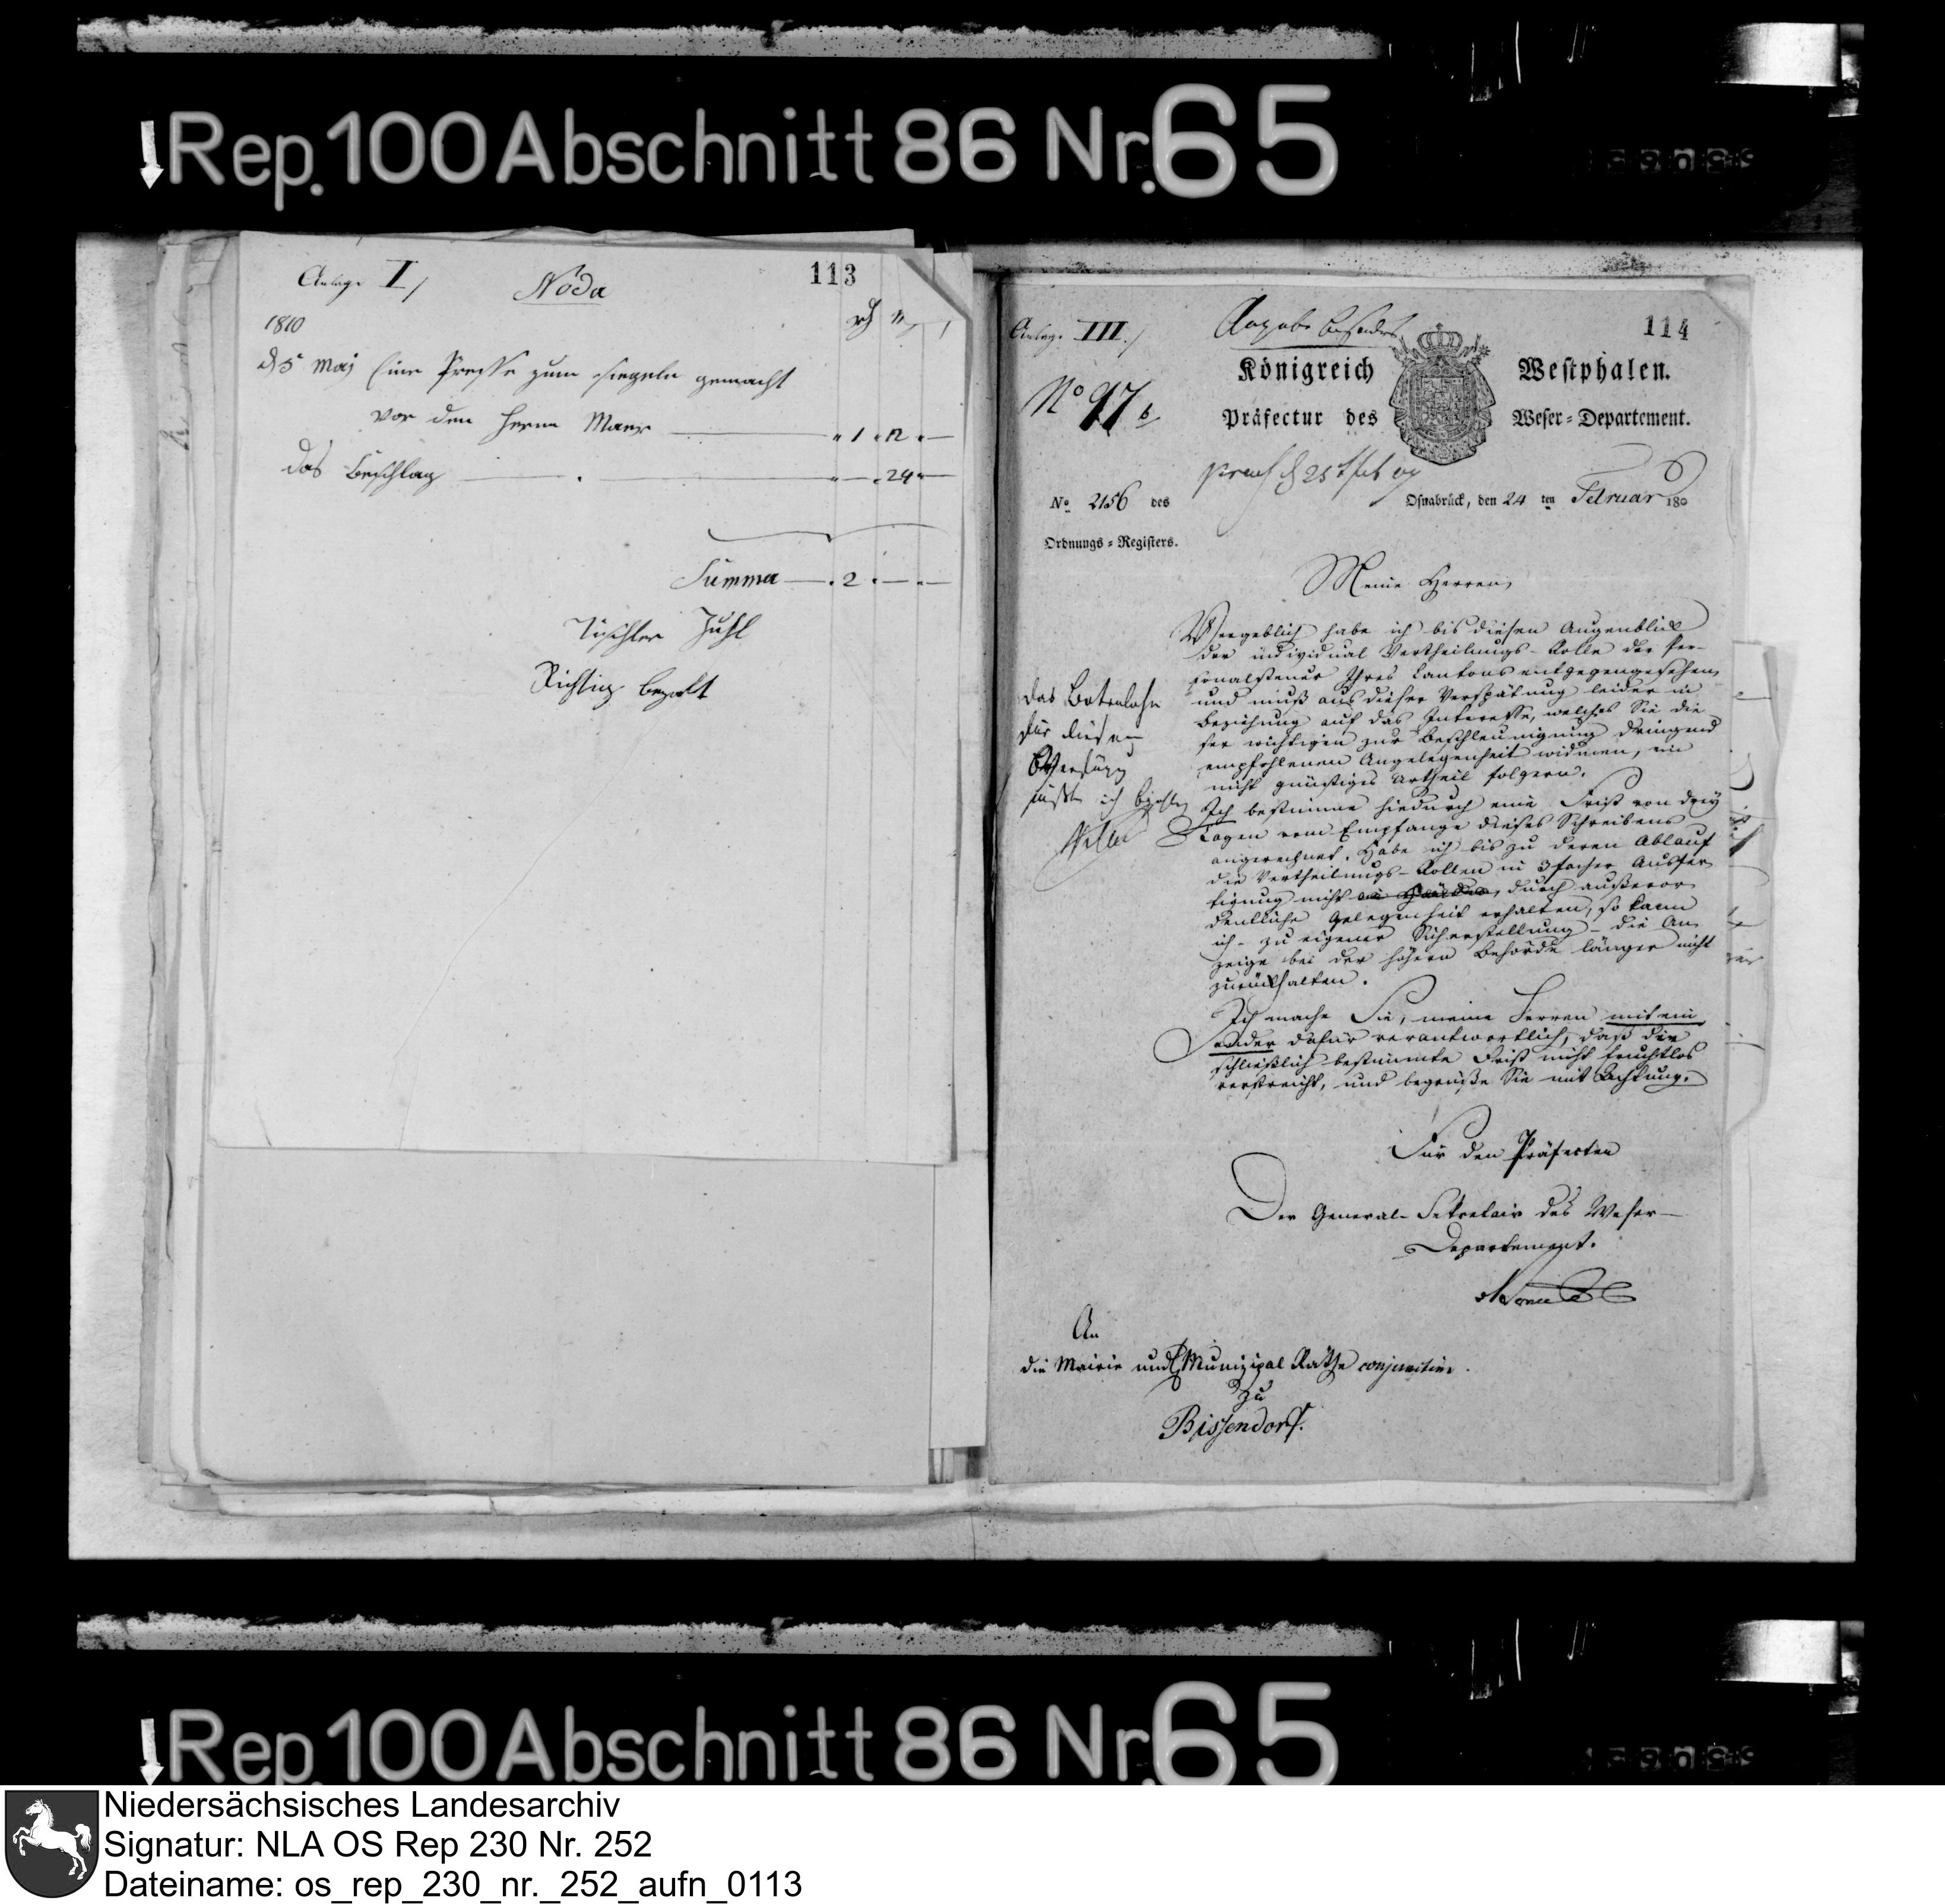 Rep. 100 Abschnitt 86 Nr. 65
Anlage I
113
Noda
1810
d 5 Maj Eine Presse zum siegeln gemacht
vor den Herrn Maer 1 12
das Beschlag 24
Summa 2
Tischler
Richtig bezalt
Anlage III.
114
Königreich Westphalen.
No 97 b
Präfectur des Weser-Departement.
No 2156 des
Osnabrück, den 24 ten Februar 180
Ordnungs-Registers.
Meine Herren
Vergeblich habe ich bis diesen Augenblick
der individual Vertheilungs-Rolle der Per-
sonalsteuer Ihres Cantons entgegengesehen,
und muß aus dieser Verspätung leider in
Beziehung auf das Interesse, welches Sie die-
ser wichtigen zur Beschleunigung dringend
empfohlenen Angelegenheit widmen, ein
nicht günstiges Urtheil folgern.
Ich bestimme hiedurch eine Frist von drey
Tagen vom Empfange dieses Schreibens
angerechnet. Habe ich bis zu deren Ablauf
die Vertheilungs-Rollen in 3facher Ausfer
tigung nicht durch außeror
dentliche Gelegenheit erhalten, so kann
ich - zu eigener Sicherstellung - die An
zeige bei der höhern Behörde länger nicht
zurückhalten.
Ich mache Sie, meine Herren mit ein
ander dafür verantwortlich, daß die
schließlich bestimmte Frist nicht fruchtlos
verstreicht, und begrüße Sie mit Achtung.
das Botenlohn
für diese
Verfügung
mußte ich bezahlen
Für den Präfecten
Der General-Sekretair des Weser-
Departement.
An
die Mairie und Munizipal Räthe conjunctim
zu
Bissendorf.
Rep. 100 Abschnitt 86 Nr. 65
Niedersächsisches Landesarchiv
Signatur: NLA OS Rep 230 Nr. 252
Dateiname: os_rep_230_nr._252_aufn_0113